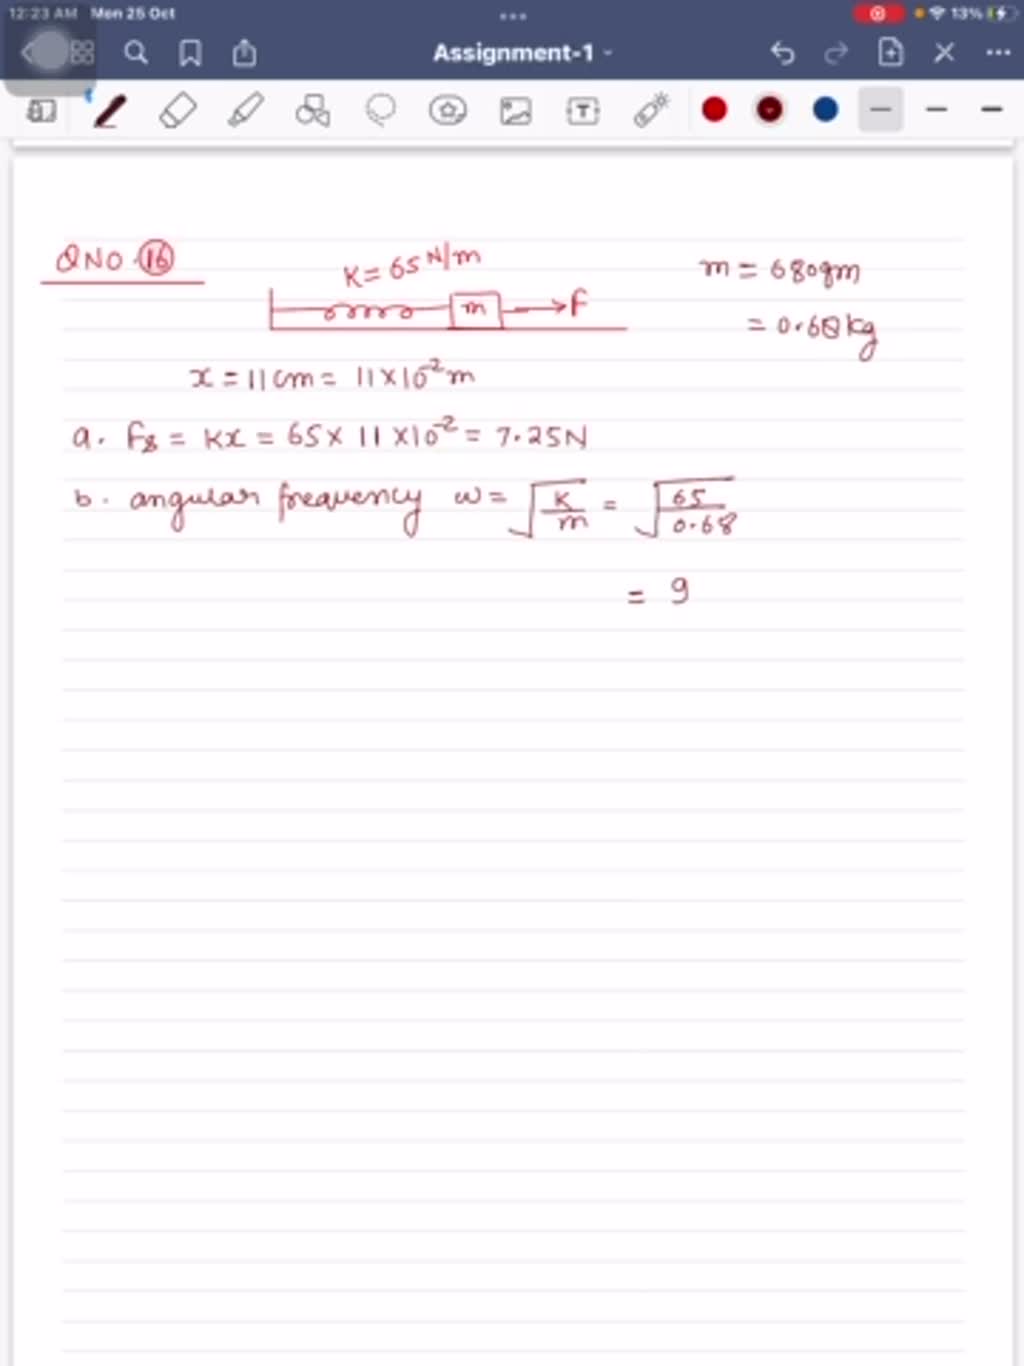 12:23 AM Mon 25 Oct
13%
Assignment-1
T
QNO. 16
K = 65 N/m
m = 680gm
m → F
= 0.68 kg
x = 11 cm = 11 × 10⁻² m
a. Fs = Kx = 65 × 11 × 10⁻² = 7.25N
b. angular frequency ω = √(K/m) = √(65/0.68)
= 9